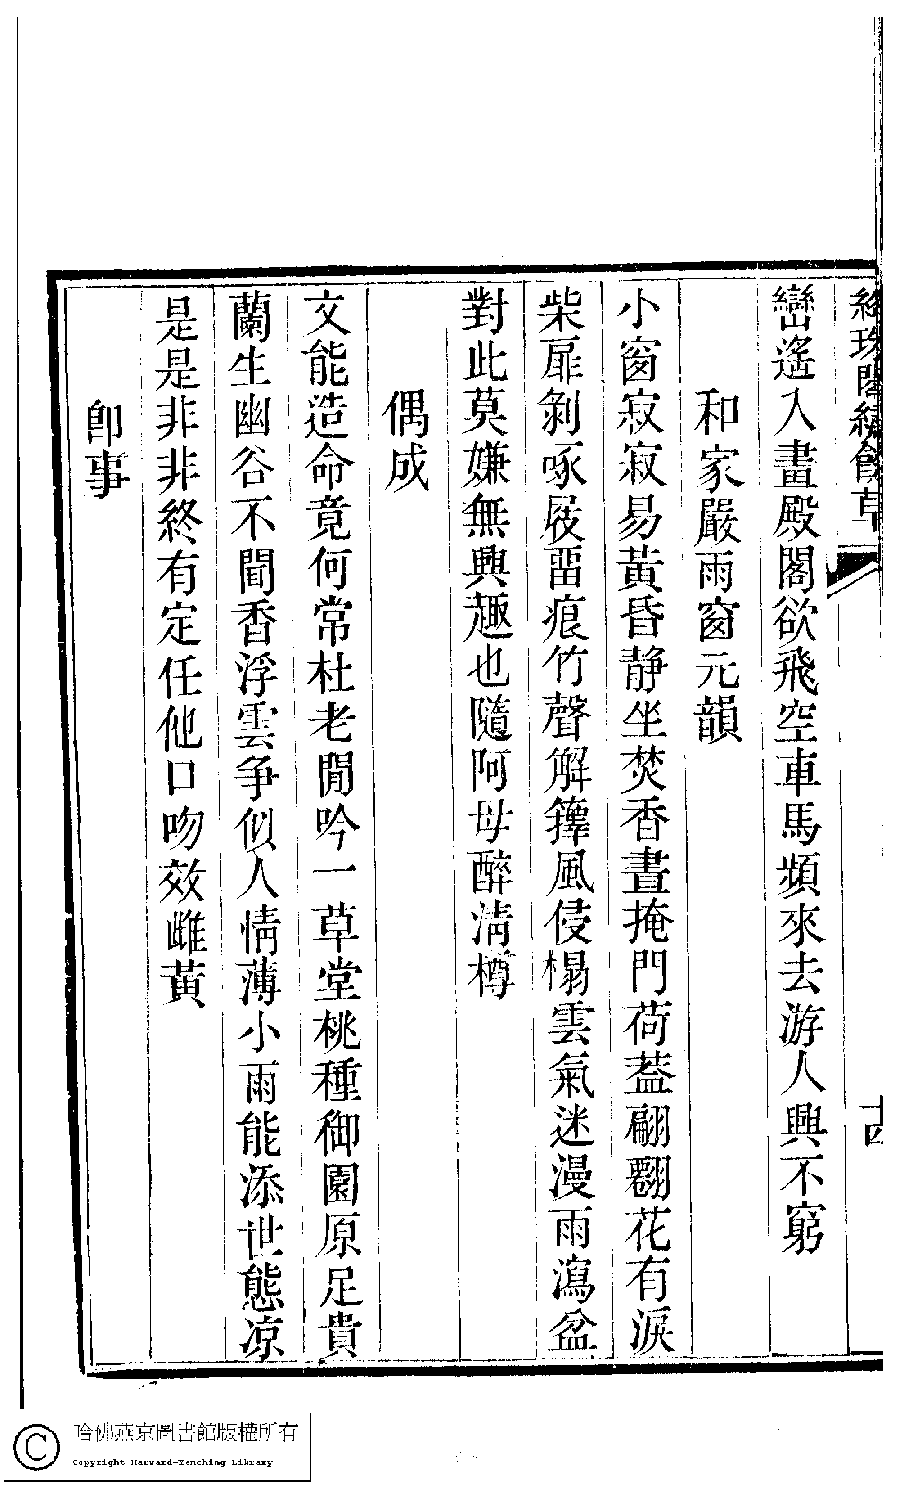 絳珠閣繡餘草
巒遙入畫殿閣欲飛空車馬頻來去游人興不窮
和家嚴雨窗元韻
小窗寂寂易黃昏静坐焚香晝掩門荷葢翩翻花有淚
柴扉剝啄屐畱痕竹聲解籜風侵榻雲氣迷漫雨瀉盆
對此莫嫌無興趣也隨阿母醉淸樽
偶成
文能造命竟何常杜老閒吟一草堂桃種御園原足貴
蘭生幽谷不聞香浮雲争似人情薄小雨能添世態凉
是是非非終有定任他口吻效雌黃
即事
哈佛燕京圖書館版權所有
Copyright Harvard-Yenching Library